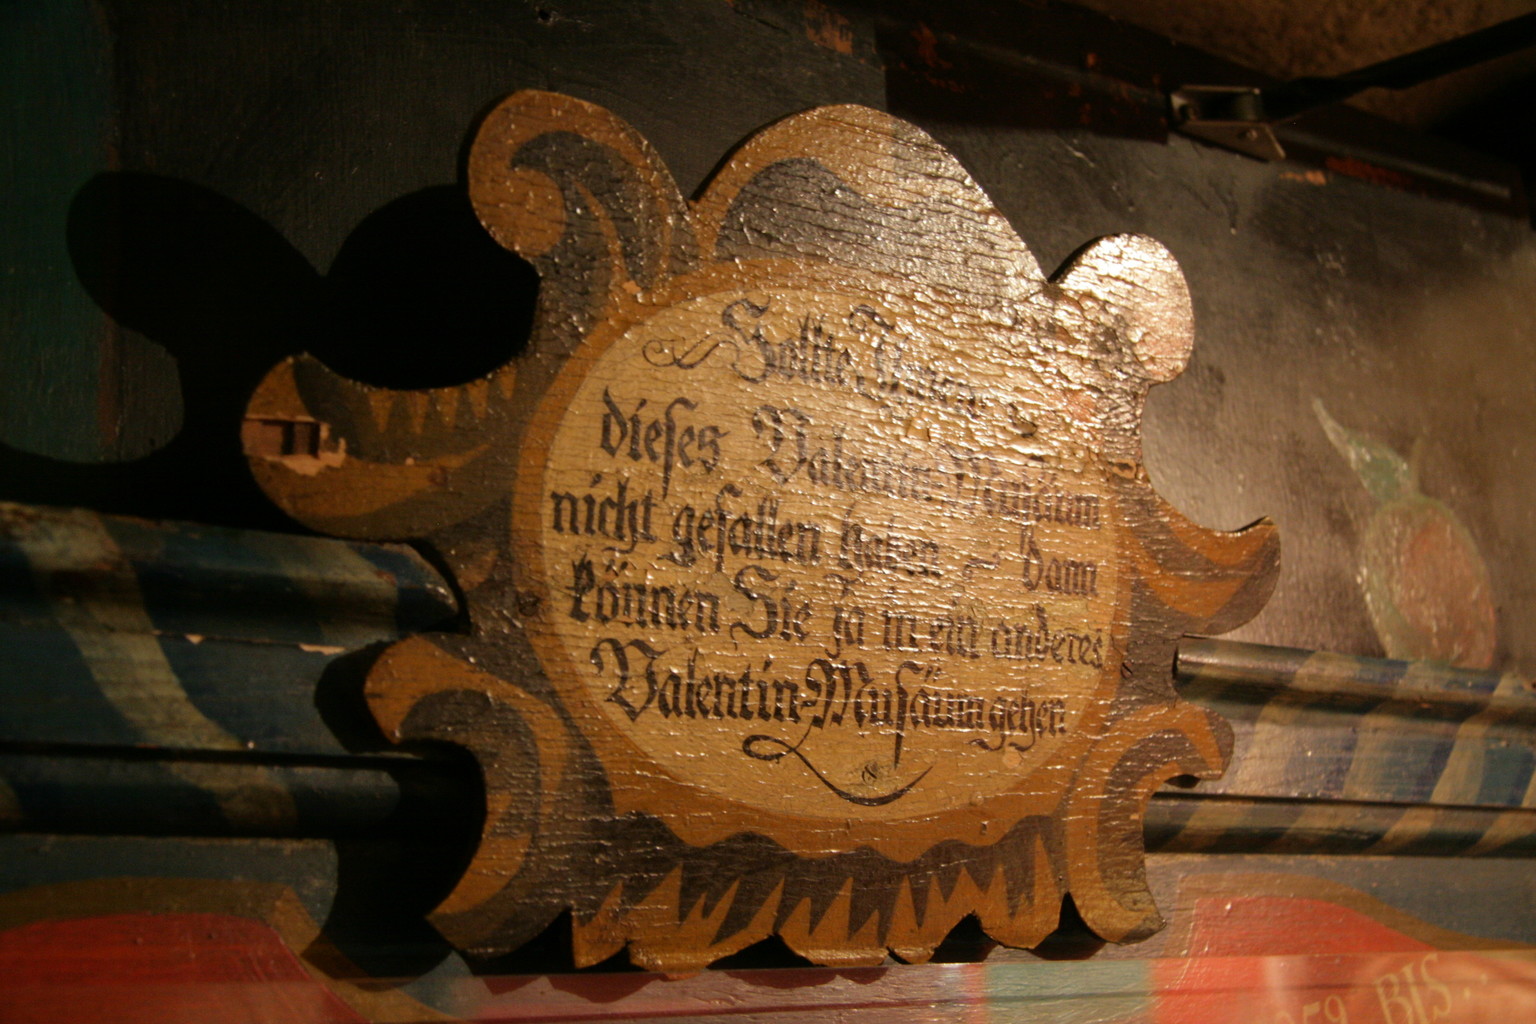 Sollte Ihnen
dieses Valentin-Musäum
nicht gefallen haben – dann
können Sie ja in ein anderes
Valentin-Musäum gehen
&
59 BIS